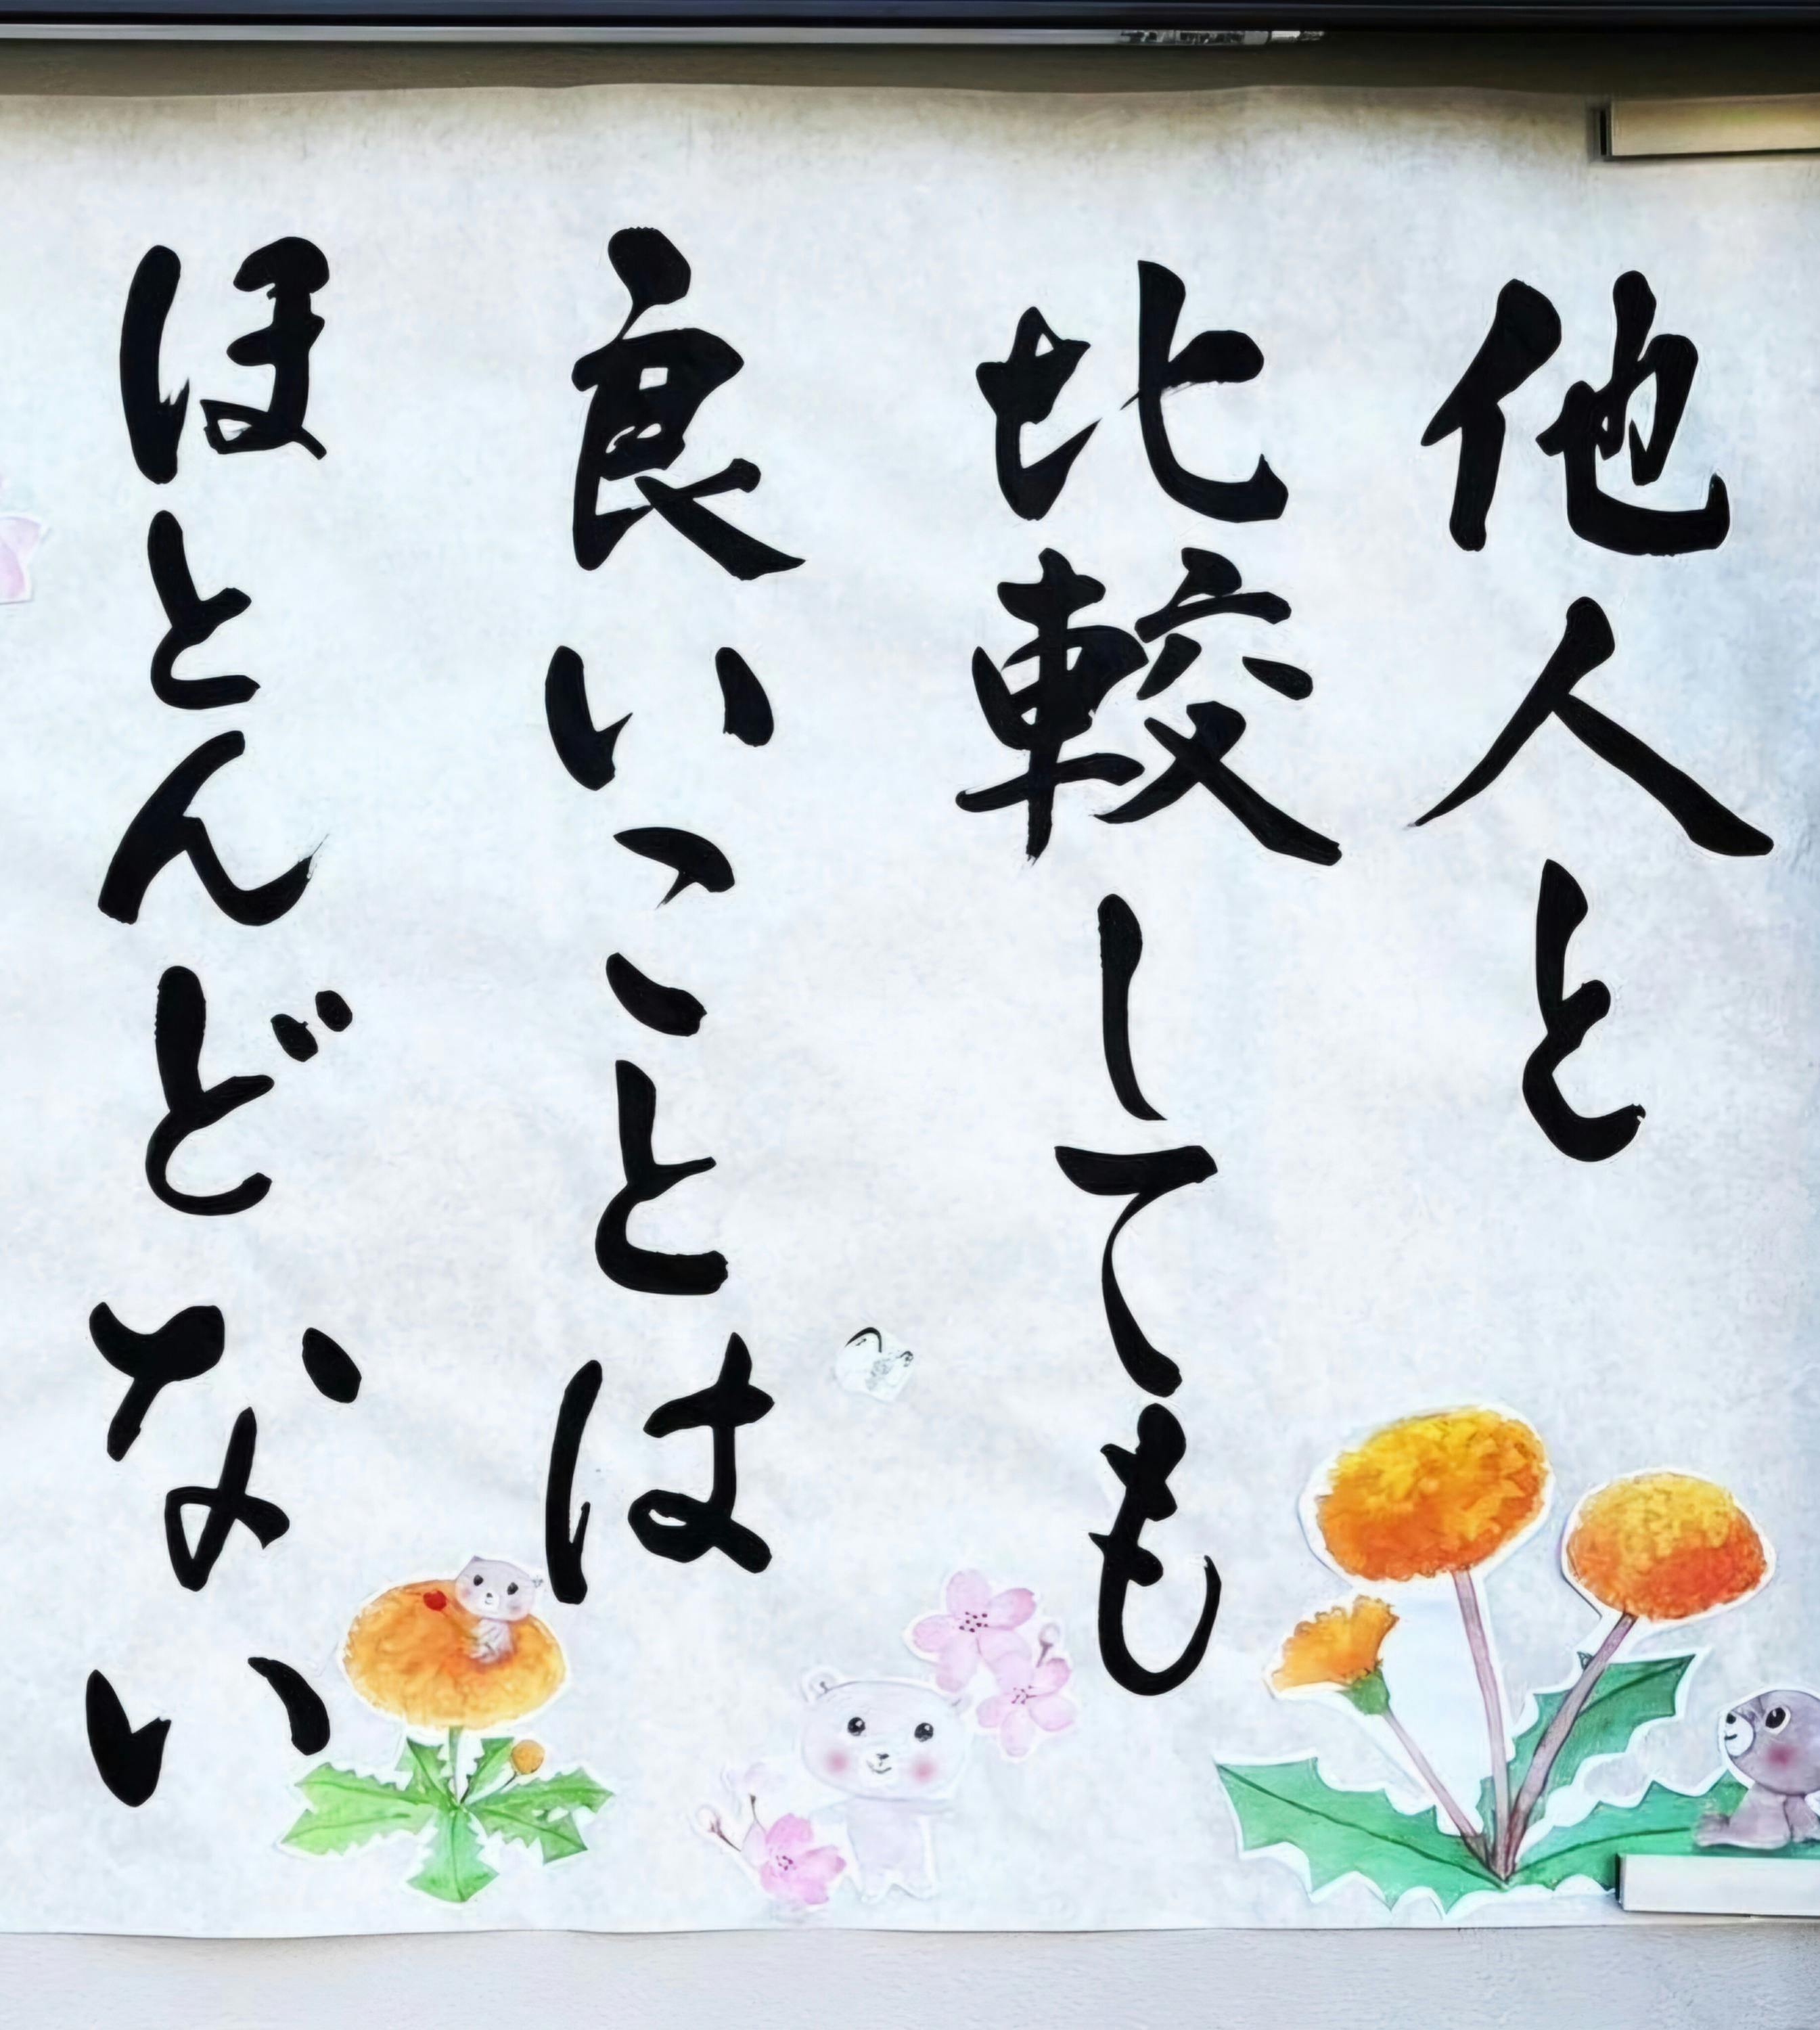 他人と
比較しても
良いことは
ほとんどない